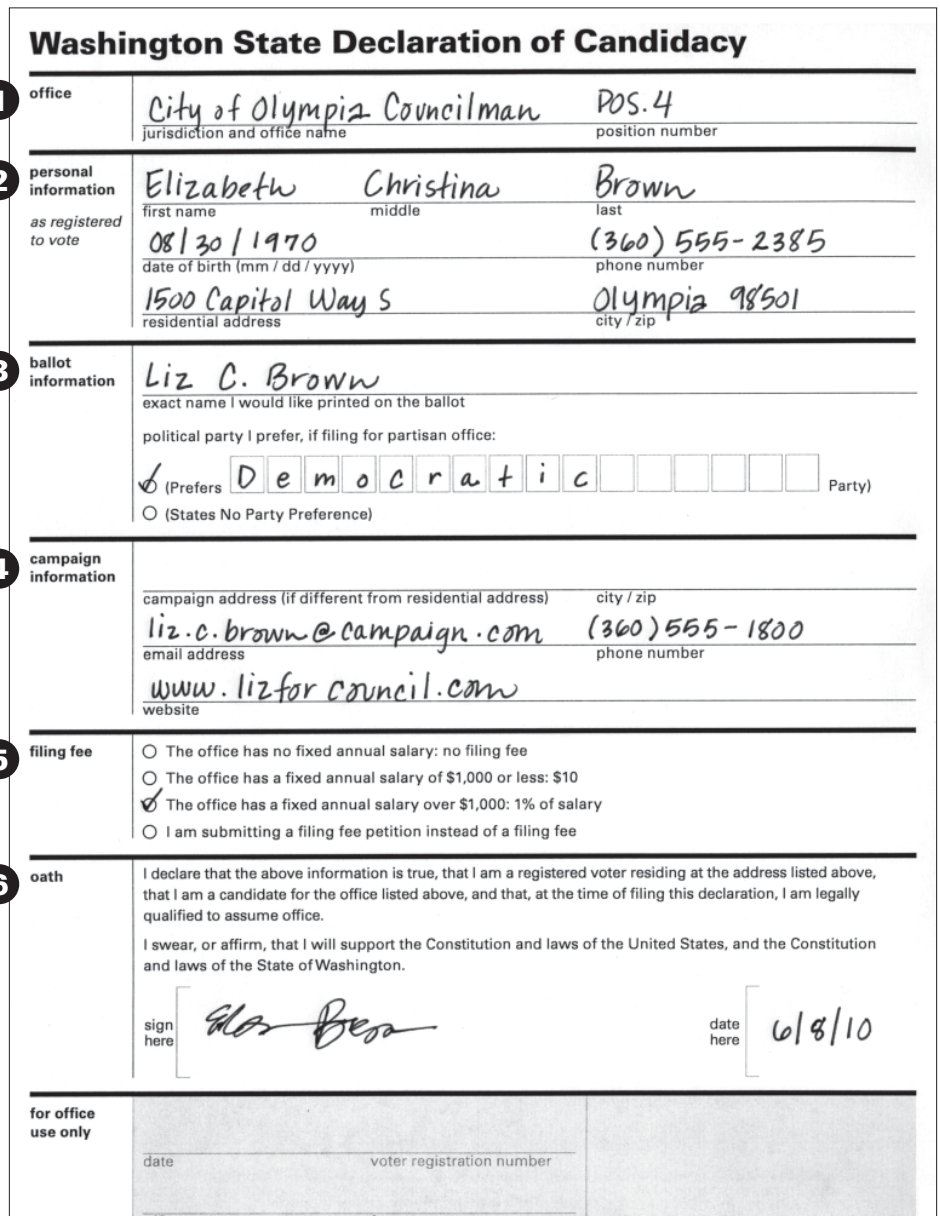 Washington State Declaration of Candidacy
1 office
City of Olympia Councilman POS. 4
jurisdiction and office name position number
2 personal information
as registered to vote
Elizabeth Christina Brown
first name middle last
08/30/1970 (360) 555-2385
date of birth (mm / dd / yyyy) phone number
1500 Capitol Way S Olympia 98501
residential address city / zip
3 ballot information
Liz C. Brown
exact name I would like printed on the ballot
political party I prefer, if filing for partisan office:
(Prefers Democratic Party)
(States No Party Preference)
4 campaign information
campaign address (if different from residential address) city / zip
liz.c.brown@campaign.com (360) 555-1800
email address phone number
www.lizforcouncil.com
website
5 filing fee
The office has no fixed annual salary: no filing fee
The office has a fixed annual salary of $1,000 or less: $10
The office has a fixed annual salary over $1,000: 1% of salary
I am submitting a filing fee petition instead of a filing fee
6 oath
I declare that the above information is true, that I am a registered voter residing at the address listed above,
that I am a candidate for the office listed above, and that, at the time of filing this declaration, I am legally
qualified to assume office.
I swear, or affirm, that I will support the Constitution and laws of the United States, and the Constitution
and laws of the State of Washington.
sign here
date here 6/8/10
for office use only
date voter registration number